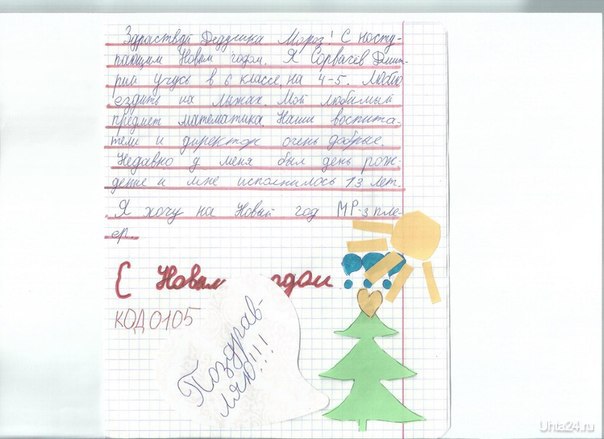 Здраствуй Дедушка Мороз! С насту-
пающим Новым годом. Я Сорвачев Дмит-
рий учусь в 6 классе, на 4-5. Люблю
ездить на лыжах. Мой любимый
предмет математика. Наши воспита-
тели и директор очень добрые.
Недавно у меня был день рож-
дение и мне исполнилось 13 лет.
Я хочу на Новый год МР-3 пле-
ер.
С Новым годом
КОД 0105
Поздрав-
ляю!!!
Uhta24.ru